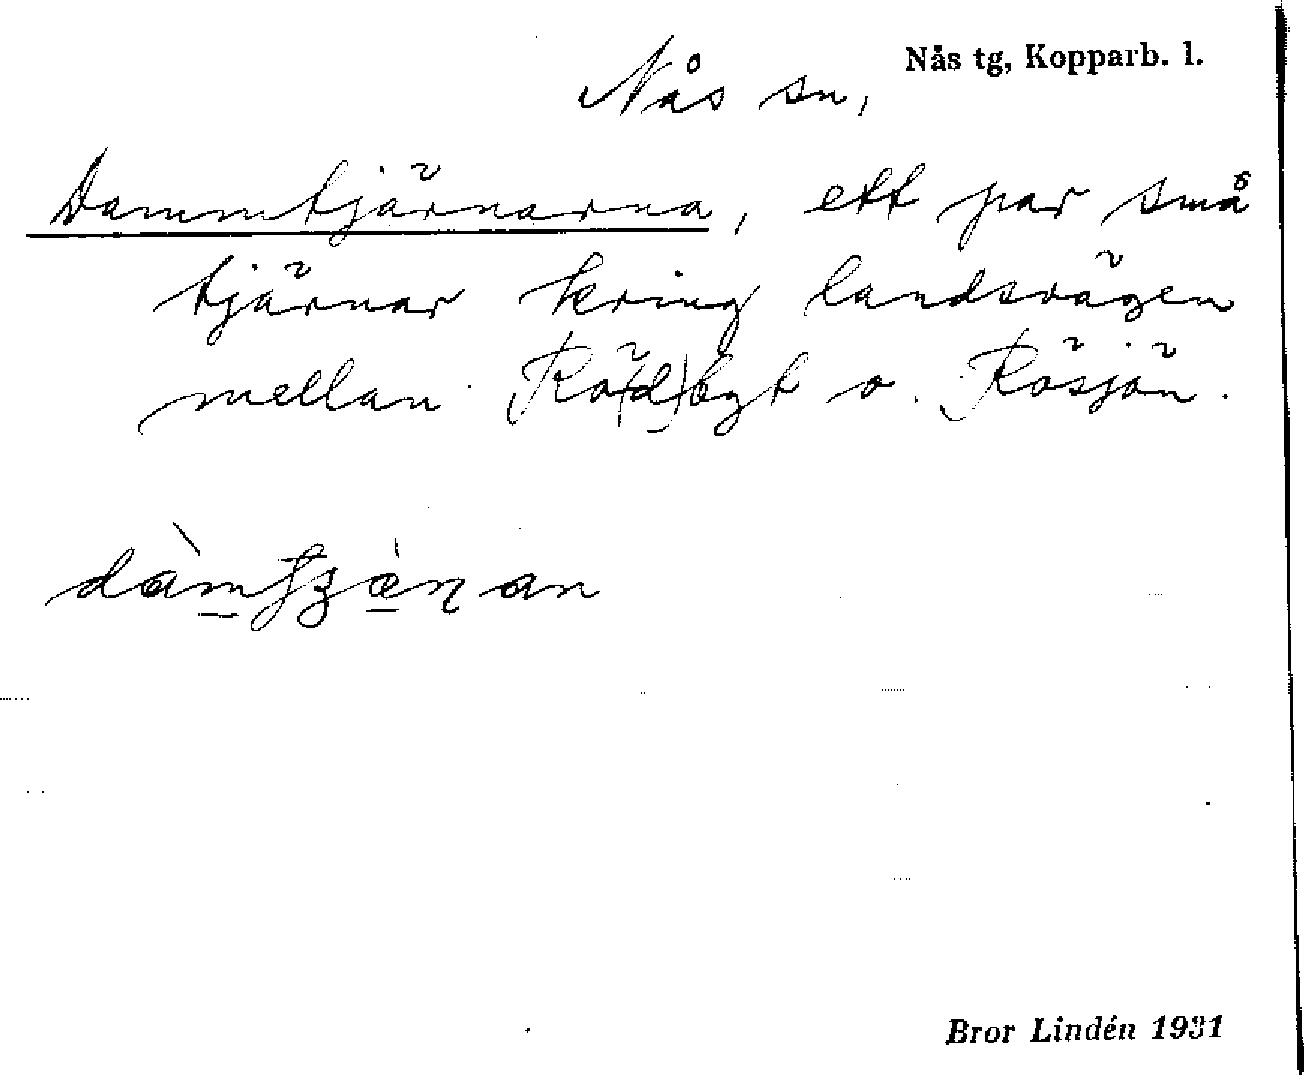 Nås tg, Kopparb. l.
Nås sn,
Dammtjärnarna, ett par små
tjärnar kring landsvägen
mellan Rö(d)byt o. Rösjön.
Bror Lindén 1931